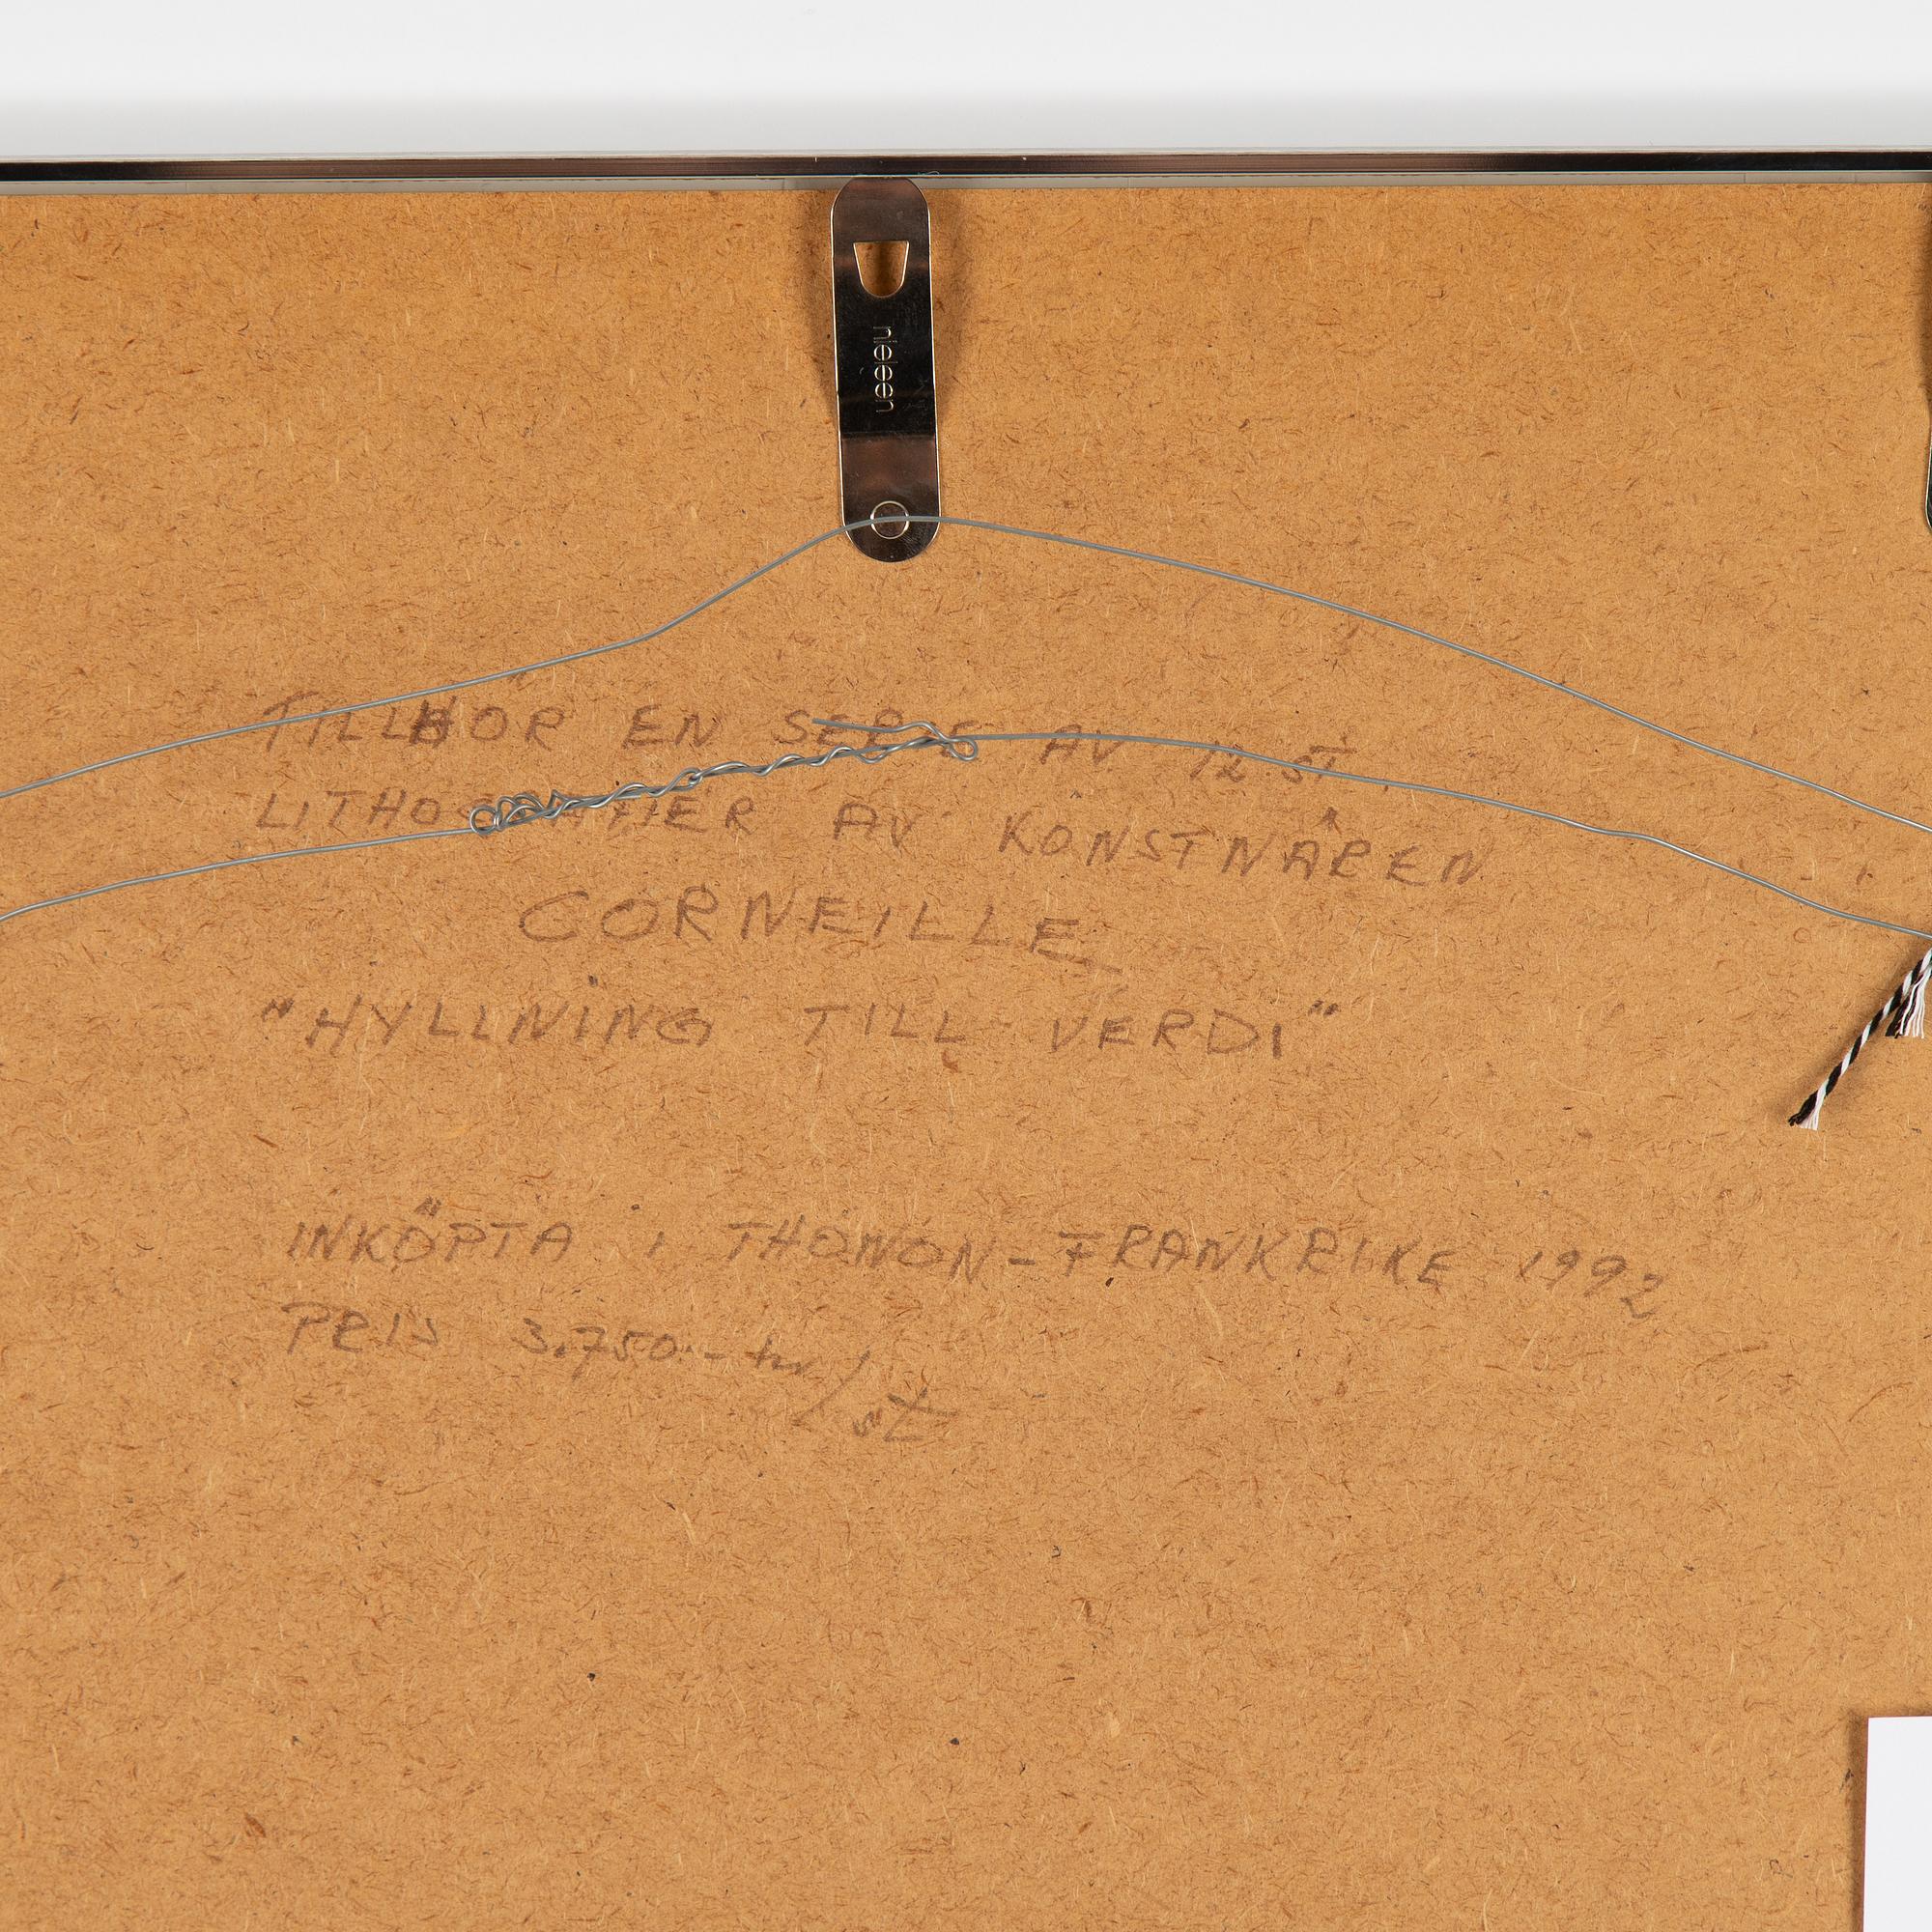 nielsen
TILLHÖR EN SERIE AV 12 ST
LITHOGRAFIER AV KONSTNÄREN
CORNEILLE
"HYLLNING TILL VERDI"
INKÖPTA I THONON - FRANKRIKE 1992
PRIS 3.750:- kr/st